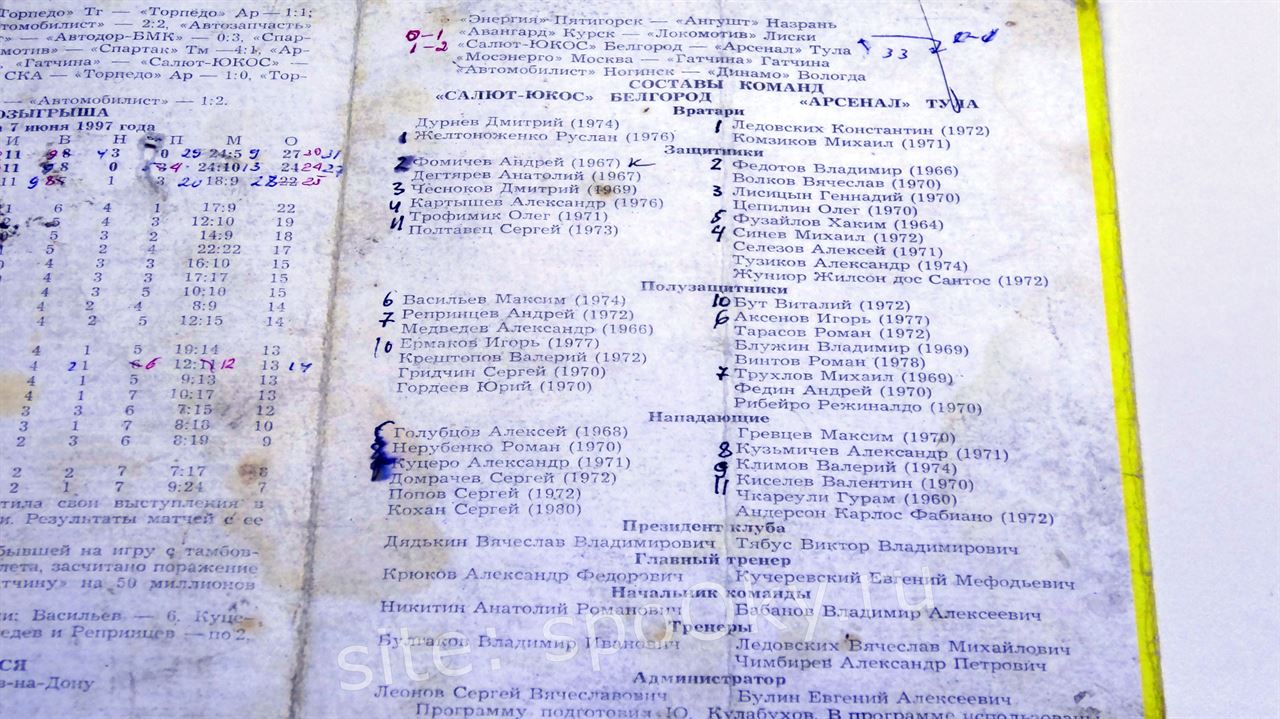 Торпедо» Тг — «Торпедо» Ар — 1:1;
томобилист» — 2:2, «Автозапчасть»
— «Автодор-БМК» — 0:3, «Спар-
мотив» — «Спартак» Тм —4:1, «Ар-
«Гатчина» — «Салют-ЮКОС» —
СКА — «Торпедо» Ар — 1:0, «Тор-
— «Автомобилист» — 1:2.
ОЗЫГРЫША
7 июня 1997 года
И В Н П М О
11 8 3 0 24:5 27
11 8 0 24:10 24
11 8 1 3 18:9 22
1 6 4 1 17:9 22
5 4 3 12:10 19
5 3 2 14:9 18
5 2 4 22:22 17
4 3 3 16:10 15
4 3 3 17:17 15
4 3 5 10:10 15
4 2 4 8:9 14
4 2 5 12:15 14
4 1 5 19:14 13
4 1 12:11 13
4 1 5 9:13 13
4 1 7 10:17 13
3 3 6 7:15 12
3 1 7 8:18 10
2 3 6 8:19 9
2 2 7 7:17 8
2 1 7 9:24 7
тила свои выступления в
и. Результаты матчей с ее
бывшей на игру с тамбов-
лета, засчитано поражение
тчину» на 50 миллионов
и: Васильев — 6, Куце-
едев и Репринцев — по 2,
СЯ
в-на-Дону
«Энергия» Пятигорск — «Ангушт» Назрань
0-1 «Авангард» Курск — «Локомотив» Лиски
1-2 «Салют-ЮКОС» Белгород — «Арсенал» Тула 33
«Мосэнерго» Москва — «Гатчина» Гатчина
«Автомобилист» Ногинск — «Динамо» Вологда
СОСТАВЫ КОМАНД
«САЛЮТ-ЮКОС» БЕЛГОРОД «АРСЕНАЛ» ТУЛА
Вратари
Дурнев Дмитрий (1974)
1 Желтоноженко Руслан (1976)
1 Ледовских Константин (1972)
Комзиков Михаил (1971)
Защитники
2 Фомичев Андрей (1967) к
Дегтярев Анатолий (1967)
3 Чесноков Дмитрий (1969)
4 Картышев Александр (1976)
Трофимик Олег (1971)
11 Полтавец Сергей (1973)
2 Федотов Владимир (1966)
Волков Вячеслав (1970)
3 Лисицын Геннадий (1970)
Цепилин Олег (1970)
5 Фузайлов Хаким (1964)
4 Синев Михаил (1972)
Селезов Алексей (1971)
Тузиков Александр (1974)
Жуниор Жилсон дос Сантос (1972)
Полузащитники
6 Васильев Максим (1974)
7 Репринцев Андрей (1972)
Медведев Александр (1966)
10 Ермаков Игорь (1977)
Крештопов Валерий (1972)
Гридчин Сергей (1970)
Гордеев Юрий (1970)
10 Бут Виталий (1972)
6 Аксенов Игорь (1977)
Тарасов Роман (1972)
Блужин Владимир (1969)
Винтов Роман (1978)
7 Трухлов Михаил (1969)
Федин Андрей (1970)
Рибейро Режиналдо (1970)
Нападающие
Голубцов Алексей (1968)
Нерубенко Роман (1970)
Куцеро Александр (1971)
Домрачев Сергей (1972)
Попов Сергей (1972)
Кохан Сергей (1980)
Гревцев Максим (1970)
8 Кузьмичев Александр (1971)
9 Климов Валерий (1974)
11 Киселев Валентин (1970)
Чкареули Гурам (1960)
Андерсон Карлос Фабиано (1972)
Президент клуба
Дядькин Вячеслав Владимирович Тябус Виктор Владимирович
Главный тренер
Крюков Александр Федорович Кучеревский Евгений Мефодьевич
Начальник команды
Никитин Анатолий Романович Бабанов Владимир Алексеевич
Тренеры
Булгаков Владимир Иванович Ледовских Вячеслав Михайлович
Чимбирев Александр Петрович
Администратор
Леонов Сергей Вячеславович Булин Евгений Алексеевич
Программу подготовил Ю. Кулабухов. В программе использованы
site: spooky.ru